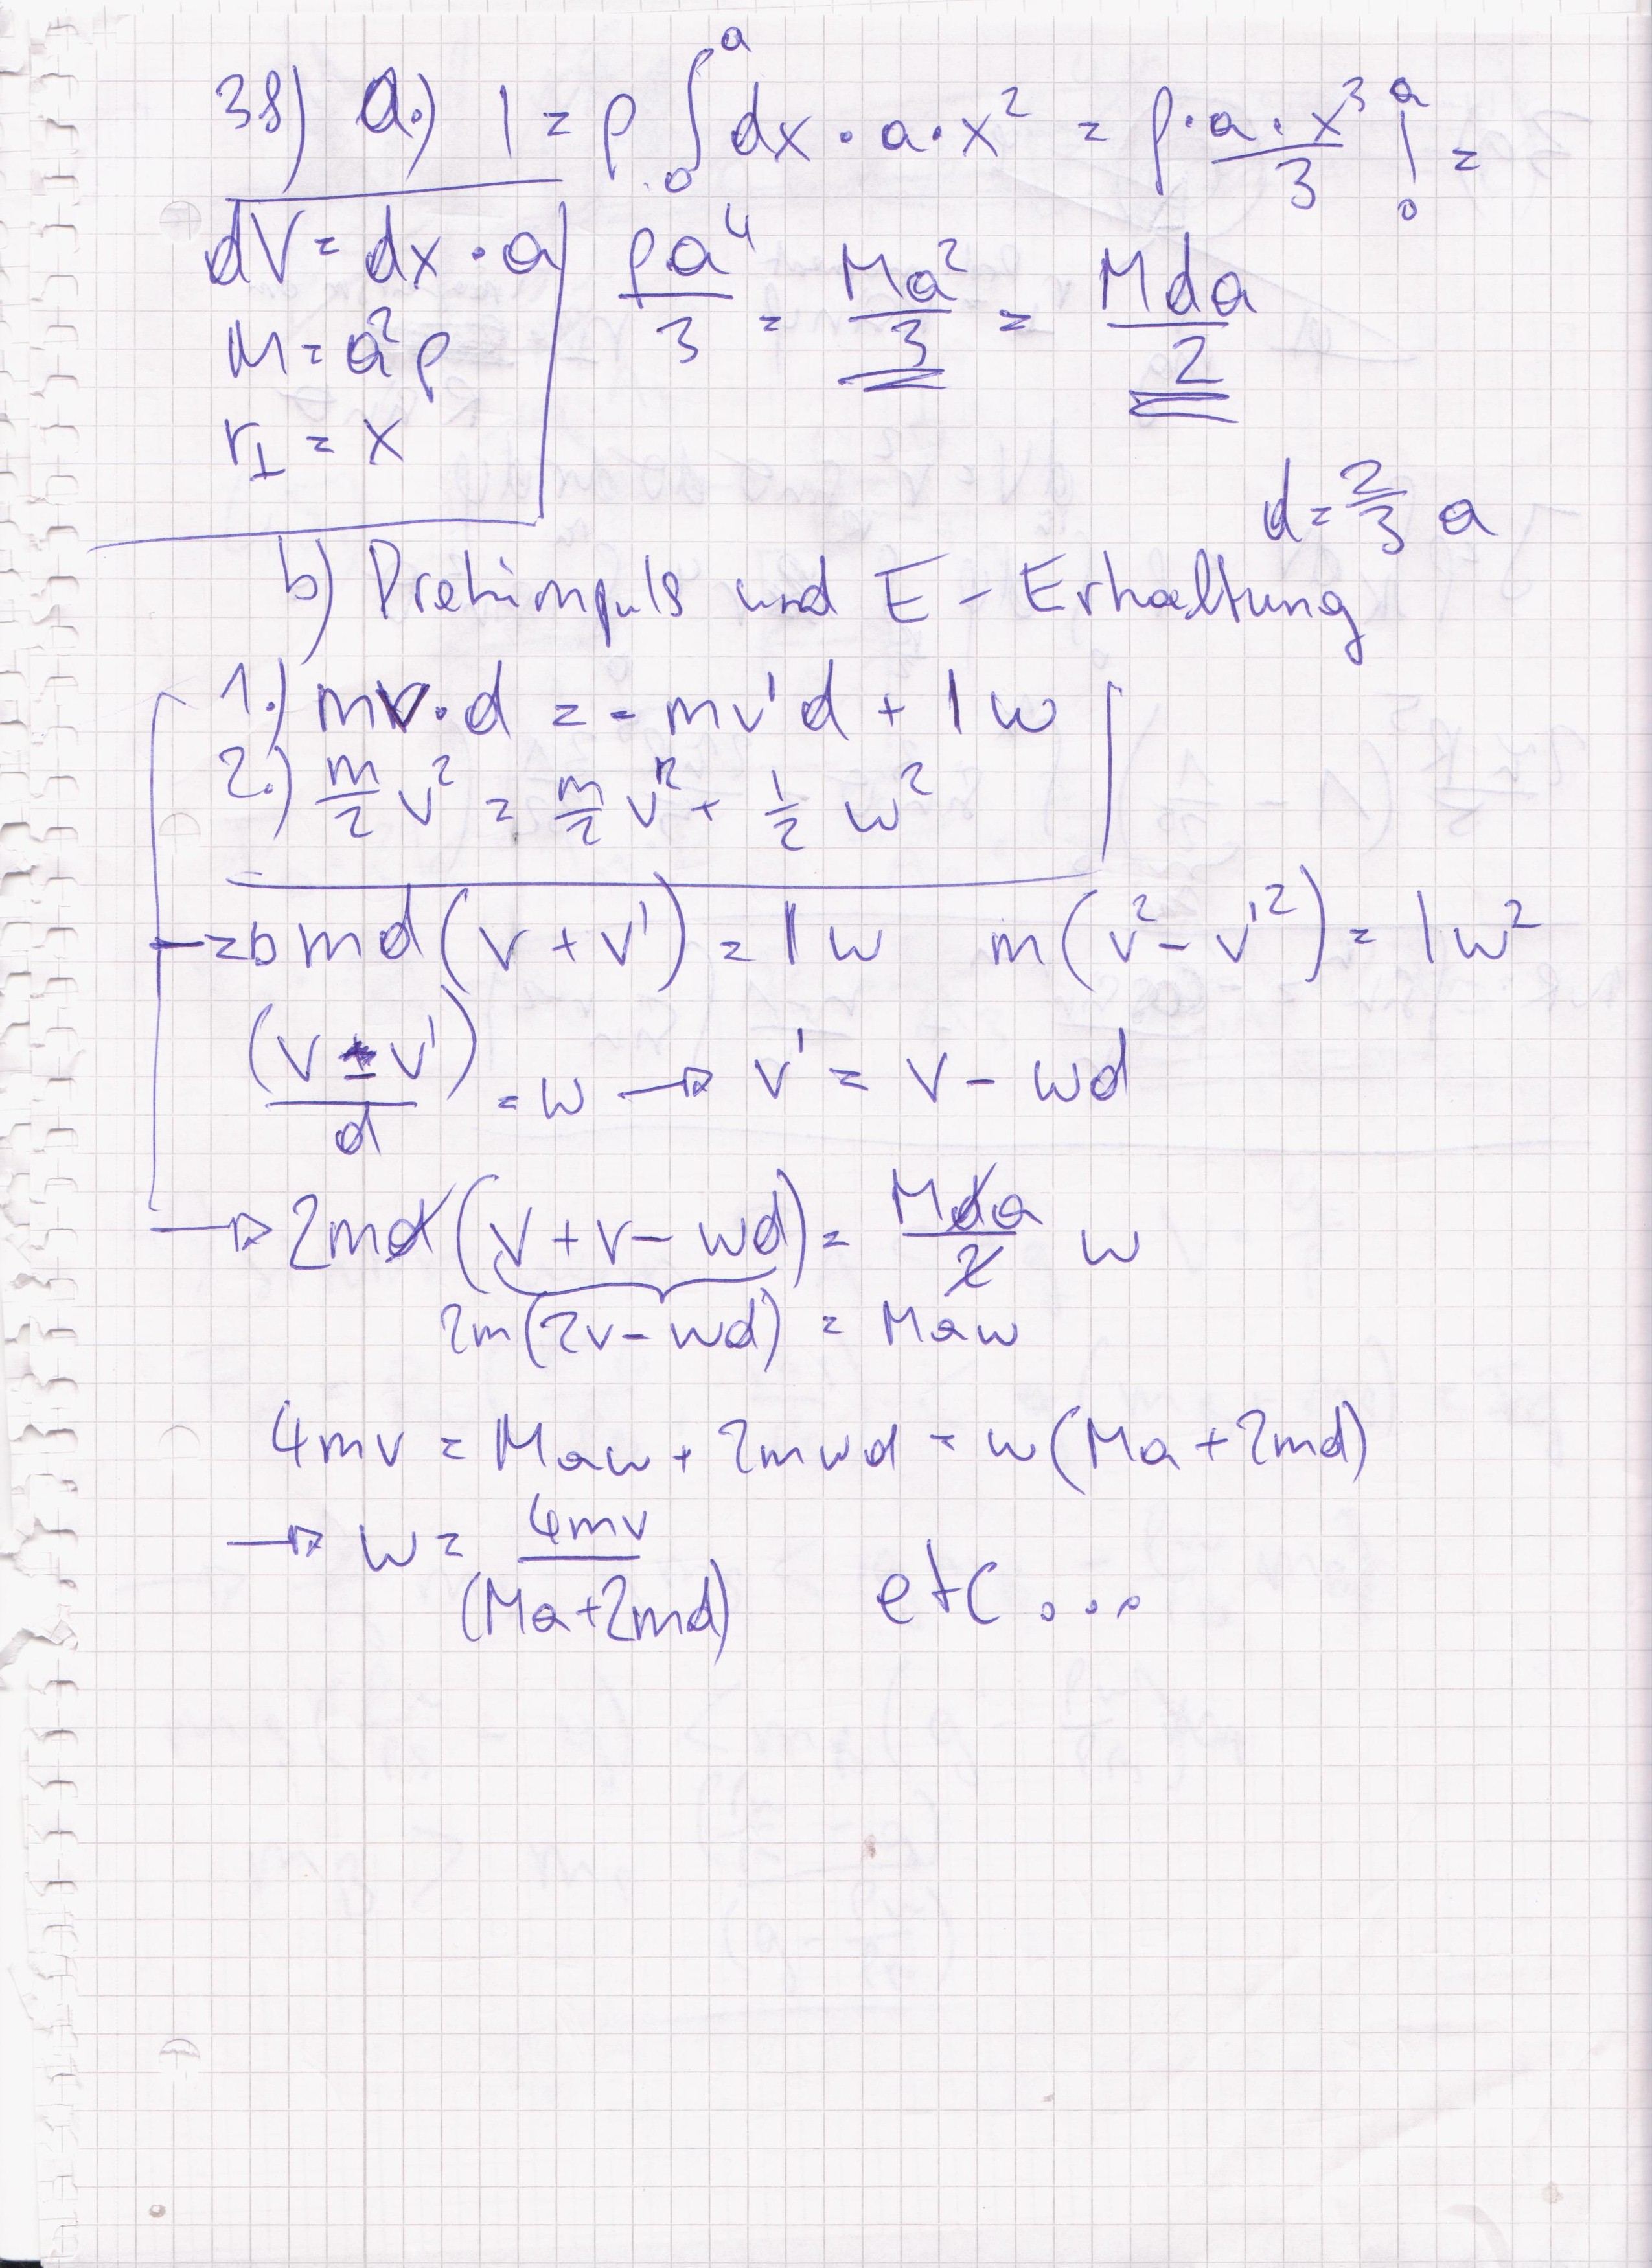 38) a.) I = ρ ∫₀ᵃ dx · a · x² = ρ · a · x³/3 |₀ᵃ =
dV = dx · a ρa⁴/3 = Ma²/3 = Mda/2
M = a²ρ
r⊥ = x
d = 2/3 a
b) Drehimpuls und E - Erhaltung
1.) mv · d = - mv'd + I w
2.) m/2 v² = m/2 v'² + I/2 w²
=> md (v + v') = I w m (v² - v'²) = I w²
(v - v')/d = w → v' = v - wd
→ 2md (v + v - wd) = Mda/2 w
2m (2v - wd) = Maw
4mv = Maw + 2mwd = w (Ma + 2md)
→ w = 4mv/(Ma + 2md) etc ...